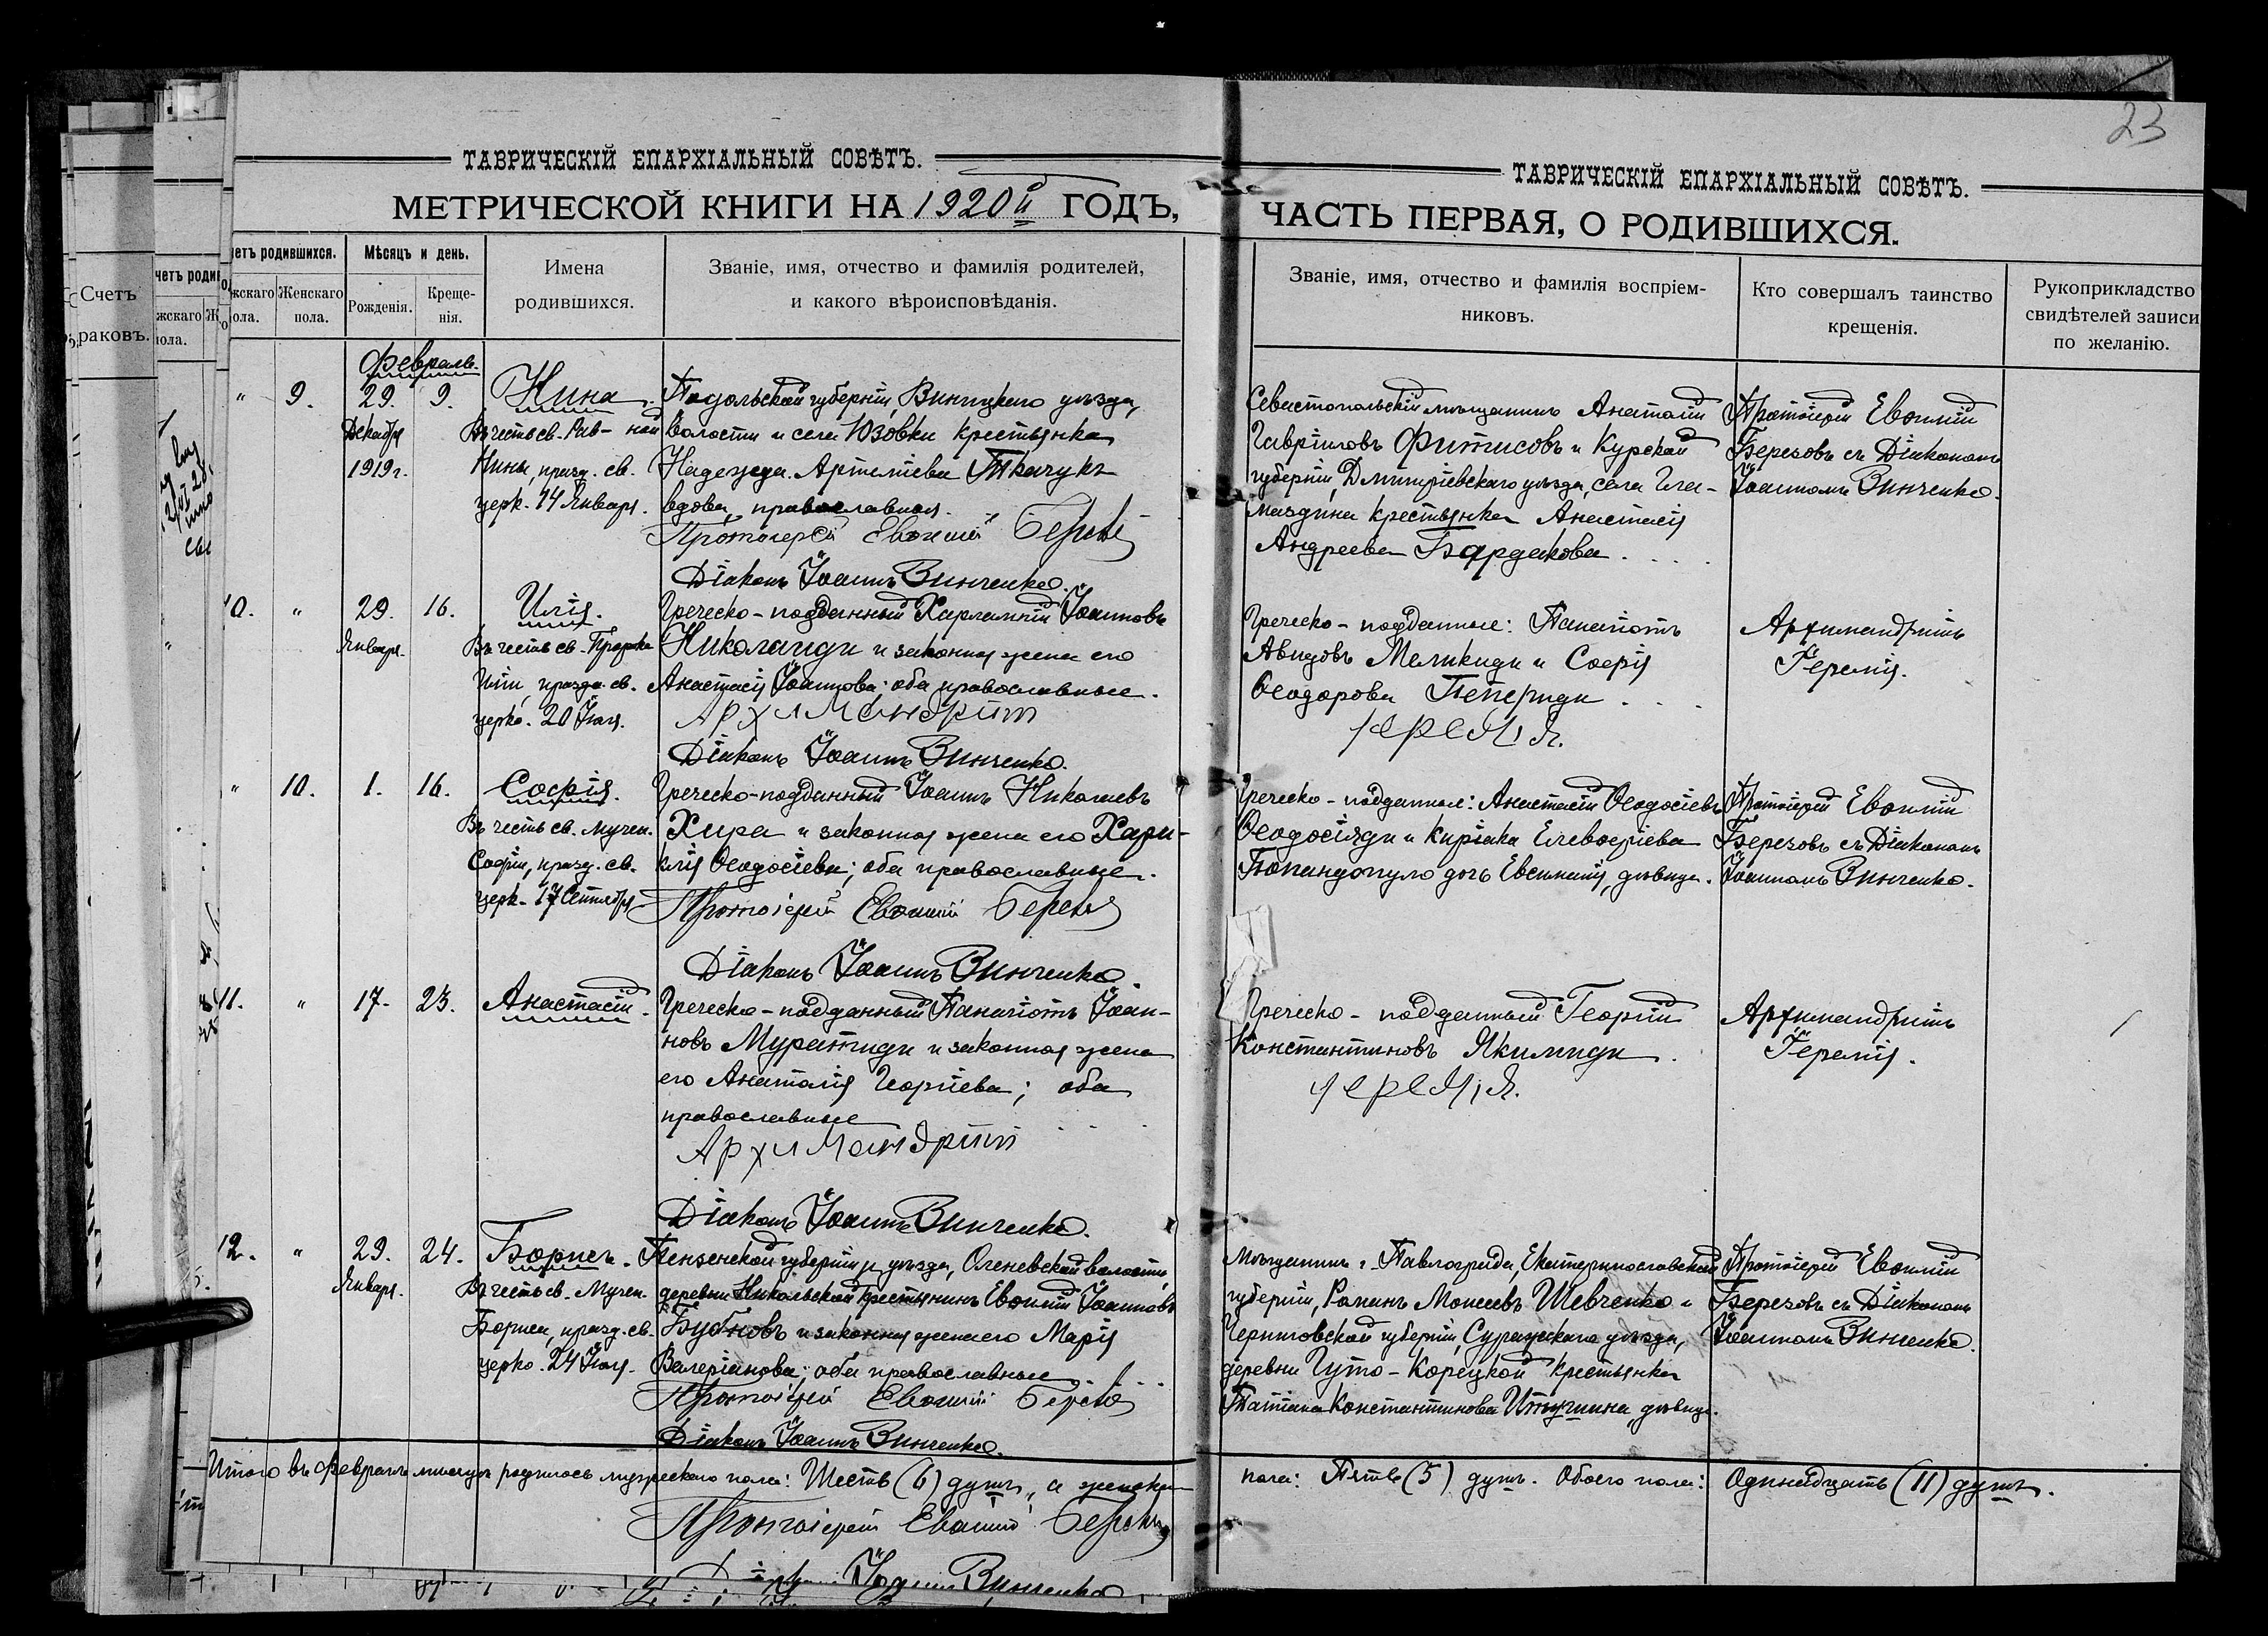 23
ТАВРИЧЕСКІЙ ЕПАРХІАЛЬНЫЙ СОВѢТЪ.
МЕТРИЧЕСКОЙ КНИГИ НА 1920й ГОДЪ,
етъ родившихся.
Мѣсяцъ и день.
Имена родившихся.
Званіе, имя, отчество и фамилія родителей,
и какого вѣроисповѣданія.
жскаго
ола.
Женскаго
пола.
Рожденія.
Креще-
нія.
Счетъ
раковъ.
ТАВРИЧЕСКІЙ ЕПАРХІАЛЬНЫЙ СОВѢТЪ.
ЧАСТЬ ПЕРВАЯ, О РОДИВШИХСЯ.
Званіе, имя, отчество и фамилія воспріем-
никовъ.
Кто совершалъ таинство
крещенія.
Рукоприкладство
свидѣтелей записи
по желанію.
Февраль.
" 9. 29. 9.
Декабря
1919 г.
Нина.
Въ честь св. Рав- ной
Нины, празд. св.
церк. 14 Января.
Подольской губерніи, Виницкаго уѣзда,
волости и села Юзовки крестьянка
Надежда Артеміева Ткачукъ
вдова, православная.
Протоіерей Евѳимій
Діаконъ Іоаннъ Винченко.
Севастопольскій мѣщанинъ Анатолій
Гавріиловъ Фитисовъ и Курской
губерніи, Дмитріевскаго уѣзда, села
крестьянка Анастасія
Андреева Бардакова.
Протоіерей Евѳимій
Березовъ съ Діакономъ
Іоанномъ Винченко.
10. " 29. 16.
Января.
Илія.
Въ честь св. Пророка
Иліи, празд. св.
церко. 20 Іюля.
Греческо-подданный Харлампій Іоанновъ
Николаиди и законная жена его
Анастасія Іоаннова; оба православные.
Архимандрит
Діаконъ Іоаннъ Винченко.
Греческо-подданные: Панаіотъ
Авидовъ Меликиди и Софія
Ѳеодорова Пепериди
Іеремія.
Архимандритъ
Іеремія.
" 10. 1. 16.
Софія.
Въ честь св. мучен.
Софіи, празд. св.
церк. 17 Сентября
Греческо-подданный Іоаннъ Николаевъ
Хира и законная жена его Хари-
клія Ѳеодосіева; оба православные.
Протоіерей Евѳимій
Діаконъ Іоаннъ Винченко.
Греческо-подданные: Анастасій Ѳеодосіевъ
Ѳеодосіяди и Киріака Елевѳеріева
Попандопуло дочь дѣвица.
Протоіерей Евѳимій
Березовъ съ Діакономъ
Іоанномъ Винченко.
11. " 17. 23.
Анастасій.
Греческо-подданный Панаіотъ Іоан-
новъ Муратиди и законная жена
его Анатолія Георгіева; оба
православные
Архимандрит
Діаконъ Іоаннъ Винченко.
Греческо-подданный Георгій
Константиновъ Якимиди.
Іеремія.
Архимандритъ
Іеремія.
12. " 29. 24.
Января.
Борисъ.
Въ честь св. Мучен.
Бориса, празд. св.
церко. 24 Іюля.
Пензенской губерніи и уѣзда, Оленевской волости,
деревни Никольской крестьянинъ Евѳимій Іоанновъ
Бубновъ и законная жена его Марія
Валеріанова; оба православные
Протоіерей Евѳимій
Діаконъ Іоаннъ Винченко.
Мѣщанинъ г. Павлограда, Екатеринославской
губерніи, Романъ Моисеевъ Шевченко и
Черниговской губерніи, Суражскаго уѣзда,
деревни Гуто-Корецкой крестьянка
Татіана Константинова дѣвица.
Протоіерей Евѳимій
Березовъ съ Діакономъ
Іоанномъ Винченко.
Итого въ февралѣ мѣсяцѣ родилось мужескаго пола: Шесть (6) душъ, а женска
пола: Пять (5) душъ. Обоего пола: Одиннадцать (11) душъ.
Протоіерей Евѳимій
Іоаннъ Винченко